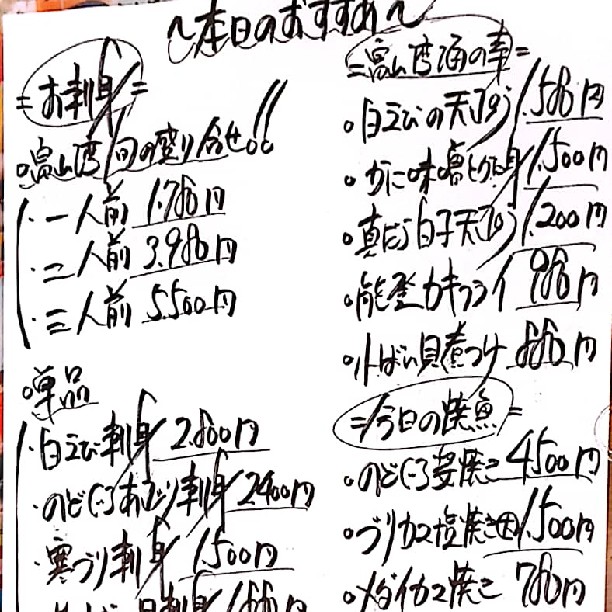 〜本日のおすすめ〜
=お刺身=
。富山湾旬の盛り合せ!!
・一人前 1.780円
・二人前 3.980円
・三人前 5.500円
。単品
・白えび刺身 2.800円
・のどぐろあぶり刺身 2400円
・寒ブリ刺身 1.500円
=富山湾海の幸=
。白えびの天ぷら 1.580円
。かに味噌 1.500円
。真だら白子天ぷら 1.200円
。能登カキフライ 980円
。小ばい貝煮つけ 880円
=今日の焼魚=
。のどぐろ姿焼き 4500円
。ブリカマ塩焼き 1.500円
。メダイカマ焼き 780円